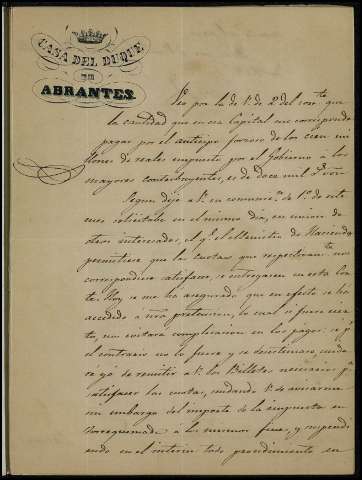 CASA DEL DUQUE
DE
ABRANTES.
Veo por la de V. de 2 del corr.te que
la cantidad que en esa Capital me corresponde
pagar por el anticipo forzoso de los cien mi
llones de reales impuesto por el Gobierno á los
mayores contribuyentes, es de doce mil rvon
Segun dije á V. en comunic.n de 1.º de este
mes solicitale en el mismo dia, en union de
otros interesados, el q.e el Ministro de Hacienda
permitiese que las cuotas que respectivam.te nos
correspondiera satisfacer, se entregasen en esta Cor
te. Hoy se me ha asegurado que en efecto se ha
accedido á nra pretension, lo cual si fuere cier
to, me evitará complicacion en los pagos: se p.r
el contrario no lo fuera y se desestimare, cuida
re yo de remitir á V. los Billetes necesarios p.a
satisfacer las cuotas, cuidando V. de avisarme
sin embargo del importe de la impuesta en
Torrequemada á lo menos fines, y suspendi
endo en el interin todo procedimiento en